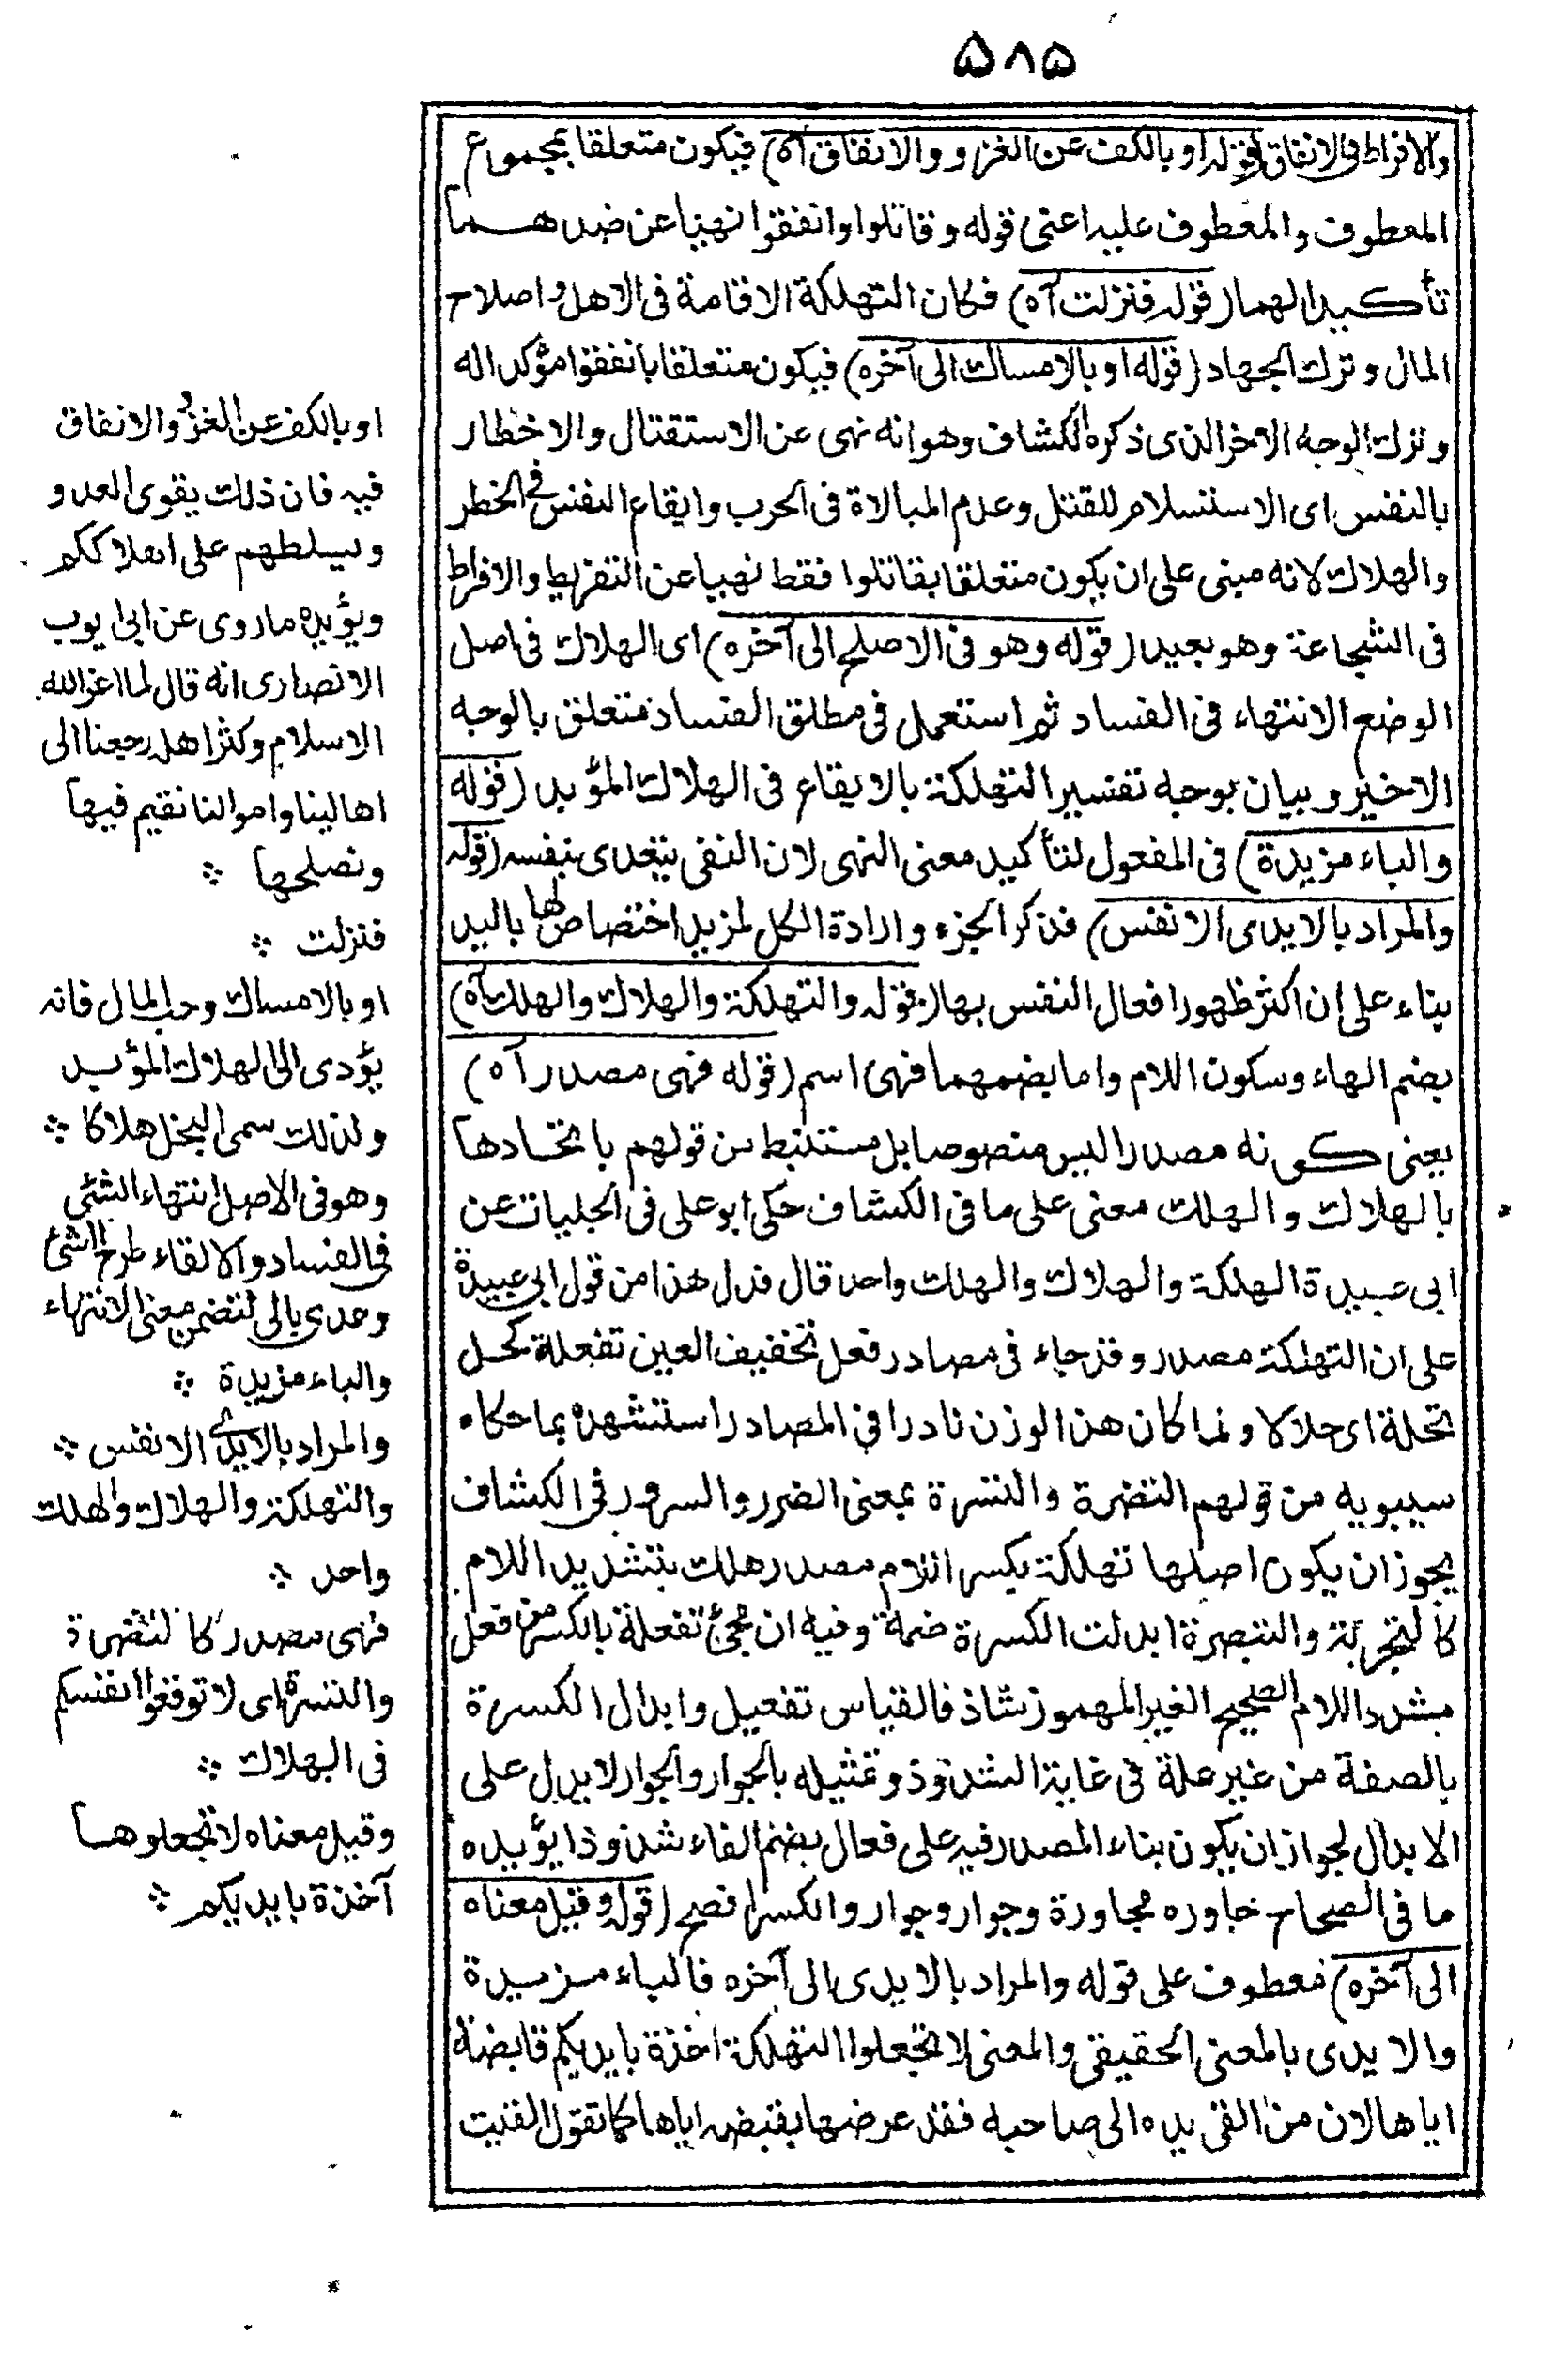 ۵۸۵
والافراط فى الانفاق (قوله او بالكف عن الغزو والانفاق آه) فيكون متعلقا بمجموع
المعطوف والمعطوف عليه اعنى قوله وقاتلوا وانفقوا نهيا عن ضدهما
تأكيدا لهما (قوله فنزلت آه) فكان التهلكة الاقامة فى الاهل واصلاح
المال وترك الجهاد (قوله او بالامساك الى آخره) فيكون متعلقا بانفقوا مؤكدا له
وترك الوجه الاخر الذى ذكره الكشاف وهو انه نهى عن الاستقتال والاخطار
بالنفس اى الاستسلام للقتل وعدم المبالاة فى الحرب وايقاع النفس فى الخطر
والهلاك لانه مبنى على ان يكون متعلقا بقاتلوا فقط نهيا عن التفريط والافراط
فى الشجاعة وهو بعيد (قوله وهو فى الاصل الى آخره) اى الهلاك فى اصل
الوضع الانتهاء فى الفساد ثم استعمل فى مطلق الفساد متعلق بالوجه
الاخير وبيان بوجه تفسير التهلكة بالايقاع فى الهلاك المؤبد (قوله
والباء مزيدة) فى المفعول لتأكيد معنى النهى لان النفى يتعدى بنفسه (قوله
والمراد بالايدى الانفس) فذكر الجزء وارادة الكل لمزيد اختصاص لها باليد
بناء على ان اكثر ظهور افعال النفس بها (قوله والتهلكة والهلاك والهلك آه)
بضم الهاء وسكون اللام واما بضمهما فهى اسم (قوله فهى مصدر آه)
يعنى كونه مصدرا ليس منصوصا بل مستنبط من قولهم باتحادها
بالهلاك والهلك معنى على ما فى الكشاف حكى ابو على فى الحلبيات عن
ابى عبيدة الهلكة والهلاك والهلك واحد قال فدل هذا من قول ابى عبيدة
على ان التهلكة مصدر وقد جاء فى مصادر فعل تخفيف العين تفعلة كحل
تحلة اى حلالا ولما كان هذا الوزن نادرا فى المصادر استشهد بما حكاه
سيبويه من قولهم التضرة والتسرة بمعنى الضرر والسرور فى الكشاف
يجوز ان يكون اصلها تهلكة بكسر اللام مصدر هلك بتشديد اللام
كالتجربة والتبصرة ابدلت الكسرة ضمة وفيه ان مجئ تفعلة بالكسر من فعل
مشدد اللام الصحيح الغير المهموز شاذ فالقياس تفعيل وابدال الكسرة
بالصفة من غير علة فى غاية الشذوذ وتمثيله بالجوار والجوار لا يدل على
الابدال لجواز ان يكون بناء المصدر فيه على فعال بضم الفاء شذوذا يؤيده
ما فى الصحاح جاوره مجاورة وجوار وجوار والكسر افصح (قوله وقيل معناه
الى آخره) معطوف على قوله والمراد بالايدى الى آخره فالباء مزيدة
والايدى بالمعنى الحقيقى والمعنى لا تجعلوا التهلكة اخذة بايديكم قابضة
اياها لان من القى يده الى صاحبه فقد عرضها بقبضه اياها كما تقول القيت
او بالكف عن الغزو والانفاق
فيه فان ذلك يقوى العدو
ويسلطهم على اهلاككم
ويؤيده ما روى عن ابى ايوب
الانصارى انه قال لما اعز الله
الاسلام وكثر اهله رجعنا الى
اهالينا واموالنا نقيم فيها
ونصلحها ؞
فنزلت ؞
او بالامساك وحب المال فانه
يؤدى الى الهلاك المؤبد
ولذلك سمى البخل هلاكا ؞
وهو فى الاصل انتهاء الشئ
فى الفساد والالقاء طرح الشئ
وعدى بالى لتضمن معنى الانتهاء
والباء مزيدة ؞
والمراد بالايدى الانفس ؞
والتهلكة والهلاك والهلك
واحد ؞
فهى مصدر كالتضرة
والتسرة اى لا توقعوا انفسكم
فى الهلاك ؞
وقيل معناه لا تجعلوها
آخذة بايديكم ؞